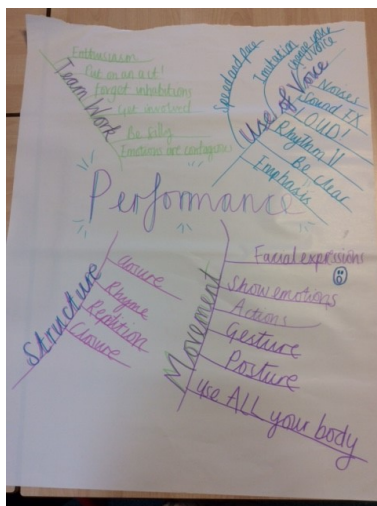 Enthusiasm
Put on an act!
forgot inhabitions
Get involved
Be Silly
Emotions are contagious
Team Work
Speed and pace
Imitation
change your voice
Noises
Sound FX
LOUD!
Rhythm
Be clear
Emphasis
Use of Voice
Performance
Structure
Rhyme
Reptition
Closure
Movement
Facial expressions
Show emotions
Actions
Gesture
Posture
use ALL your body